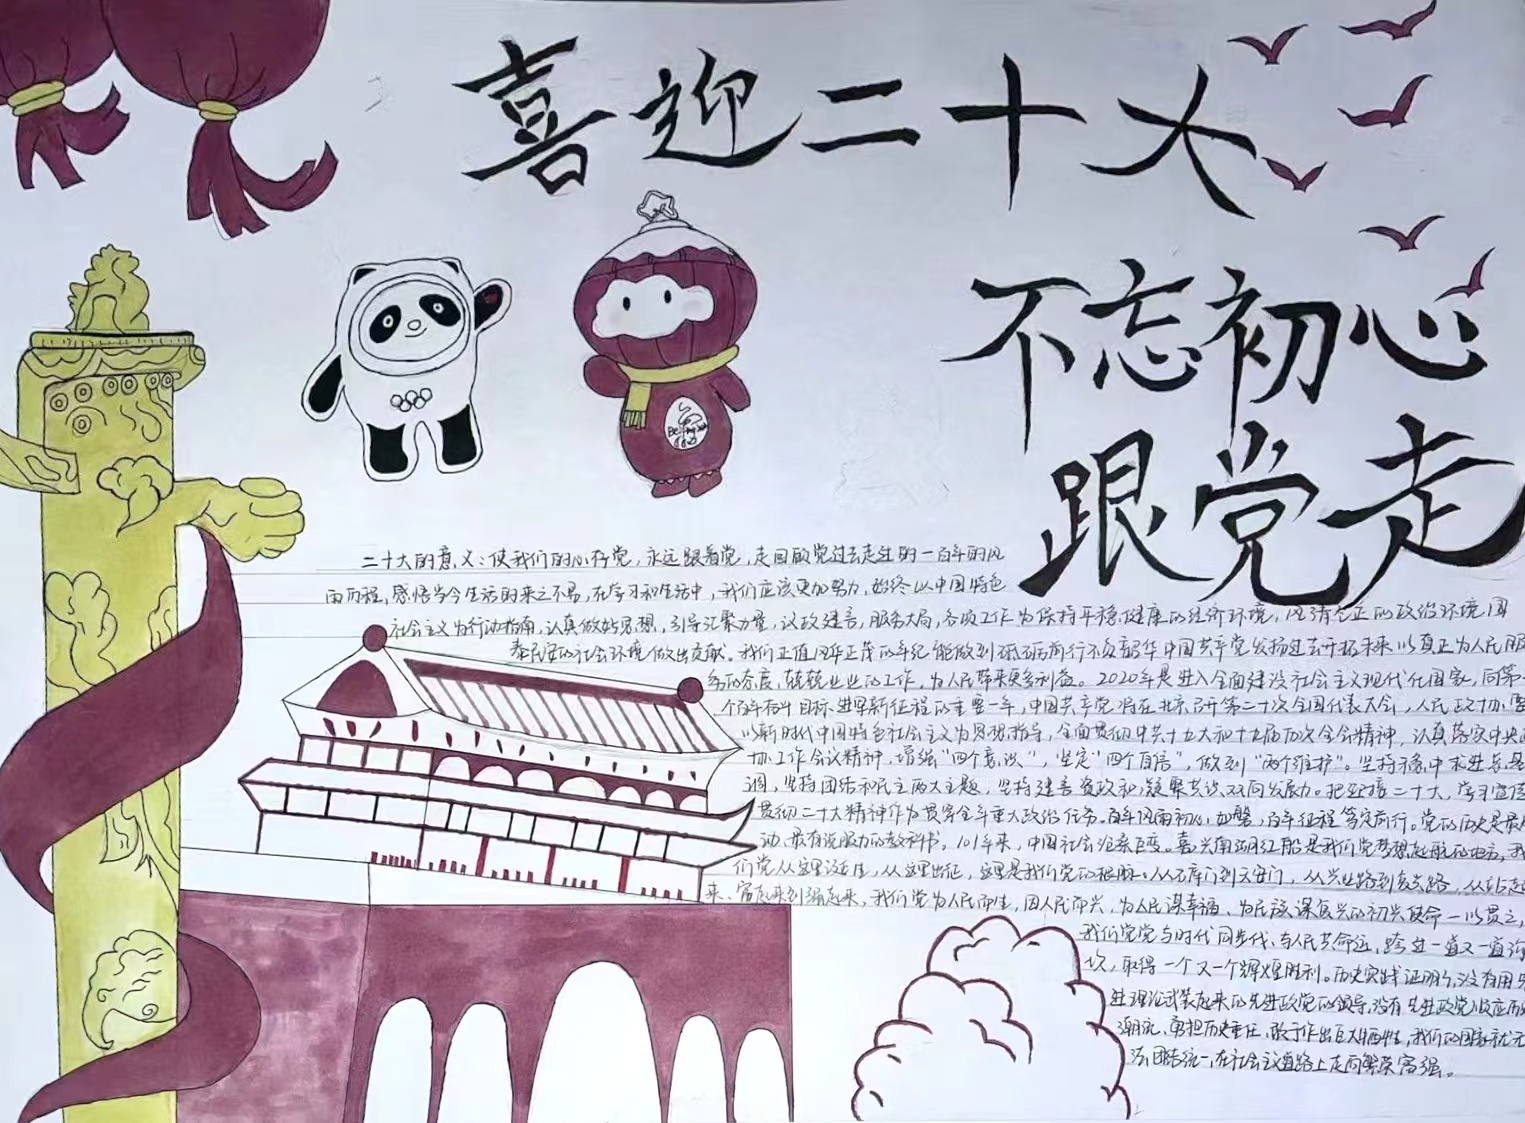 喜迎二十大
不忘初心
跟党走
Beijing
二十大的意义:使我们的心存党,永远跟着党,走回顾党过去走过的一百年的风
雨历程,感悟当今生活的来之不易,在学习和生活中,我们应该更加努力,始终以中国特色
社会主义为行动指南,认真做好思想,引导汇聚力量,议政建言,服务大局,各项工作为保持平稳健康的经济环境,风清气正的政治环境国
泰民安的社会环境做出贡献。我们正值风华正茂的年纪能做到砥砺前行不负韶华中国共产党发扬过去开拓未来以真正为人民服
务的态度,兢兢业业的工作,为人民带来更多利益。2020年是进入全面建设社会主义现代化国家,向第
个百年奋斗目标进军新征程的重要一年,中国共产党将在北京召开第二十次全国代表大会,人民政协要
以新时代中国特色社会主义为思想指导,全面贯彻中共十九大和十九届历次全会精神,认真落实中央
协工作会议精神,增强“四个意识”,坚定“四个自信”,做到“两个维护”。坚持稳中求进总基
调,坚持团结和民主两大主题,坚持建言资政和凝聚共识双向发力。把迎接二十大,学习宣传
贯彻二十大精神作为贯穿全年重大政治任务。百年风雨初心如磐,百年征程笃定前行。党的历史是最
动、最有说服力的教科书,101年来,中国社会沧桑巨变。嘉兴南湖红船是我们党梦想起航的地方,我
们党从这里诞生,从这里出征,这里是我们党的根脉。从石库门到天安门,从兴业路到复兴路,从站起
来、富起来到强起来,我们党为人民而生,因人民而兴,为人民谋幸福、为民族谋复兴的初兴使命一以贯之,
我们党党与时代同步代、与人民共命运,跨过一道又一道沟
坎,取得一个又一个辉煌胜利。历史实践证明,没有用先
进理论武装起来的先进政党的领导,没有先进政党顺应历史
潮流、勇担历史重任、敢于作出巨大牺牲,我们的国家就无
法团结统一,在社会主义道路上走向繁荣富强。